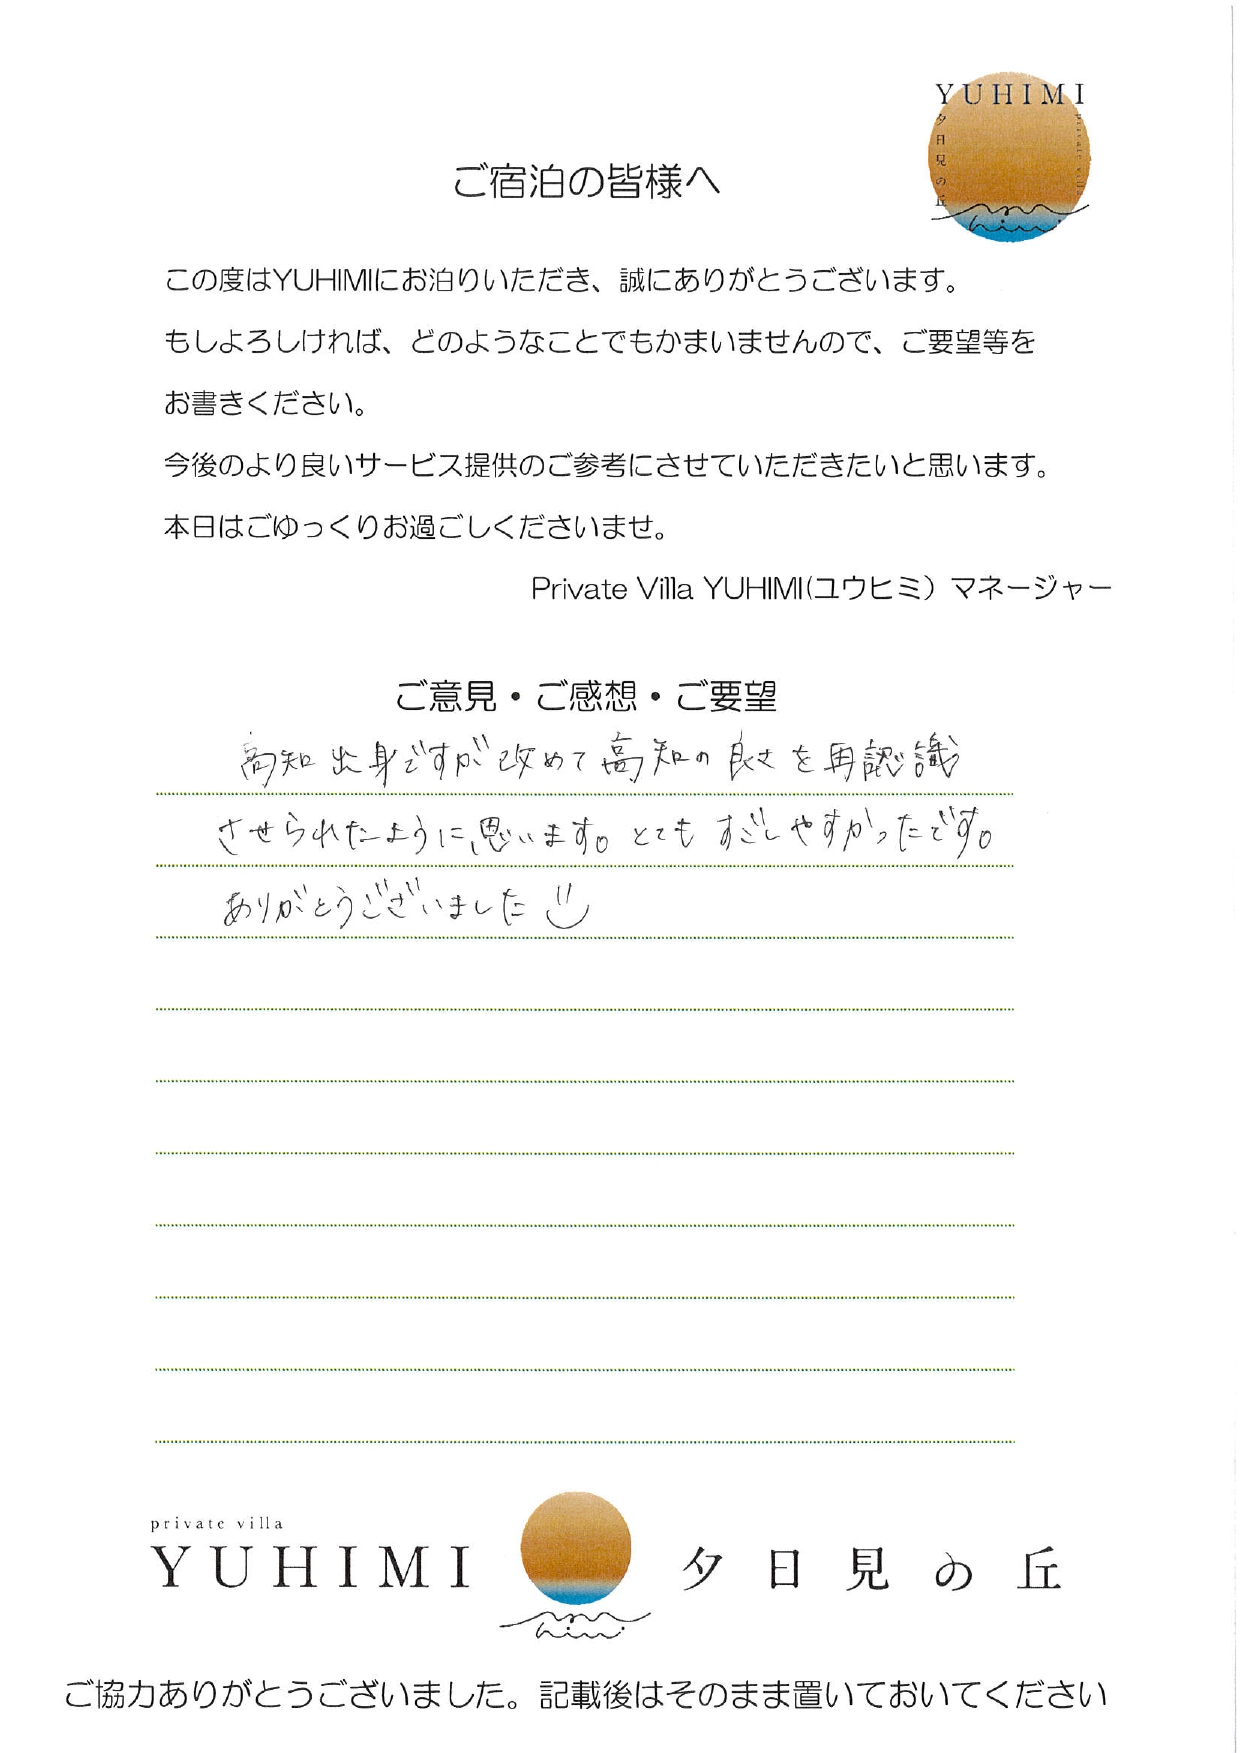 YUHIMI
夕日見の丘
private villa
ご宿泊の皆様へ
この度はYUHIMIにお泊りいただき、誠にありがとうございます。
もしよろしければ、どのようなことでもかまいませんので、ご要望等を
お書きください。
今後のより良いサービス提供のご参考にさせていただきたいと思います。
本日はごゆっくりお過ごしくださいませ。
Private Villa YUHIMI(ユウヒミ）マネージャー
ご意見・ご感想・ご要望
高知出身ですが改めて高知の良さを再認識
させられたように思います。とてもすごしやすかったです。
ありがとうございました
private villa
YUHIMI 夕日見の丘
ご協力ありがとうございました。記載後はそのまま置いておいてください